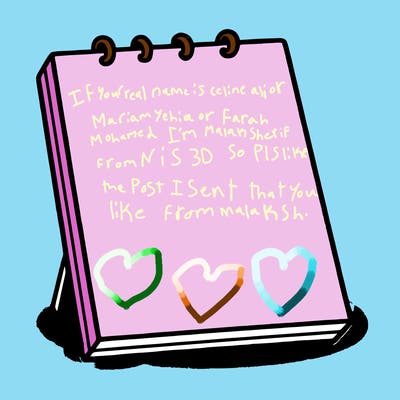 If your real name is celine ali or
Mariam yehia or Farah
Mohamed I'm malak Sherif
From NiS 3D So Pls like
the Post I Sent that you
like From malak Sh.